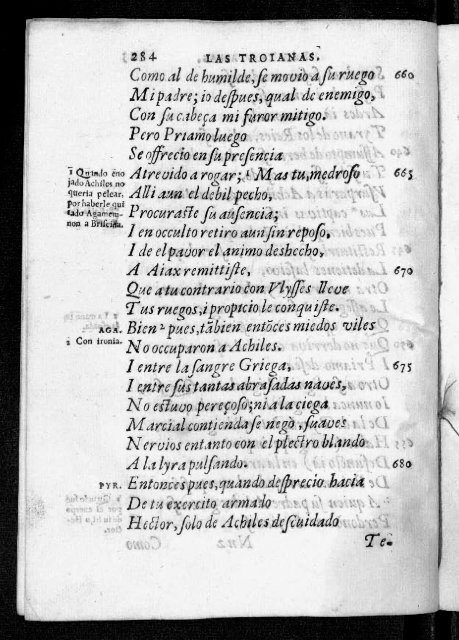 284 LAS TROIANAS.
Como al de humilde, se movio a su ruego 660
Mi padre; io despues, qual de enemigo,
Con su cabeça mi furor mitigo.
Pero Priamo luego
Se offrecio en su presencia
Atrevido a rogar; ¹ Mas tu, medroso 665
Alli aun el debil pecho,
Procuraste su ausencia;
I en occulto retiro aun sin reposo,
I de el pavor el animo deshecho,
A Aiax remittiste, 670
Que a tu contrario con Vlysses lleve
Tus ruegos, i propicio le conquiste.
AGA. Bien ² pues, tãbien entõces miedos viles
No occuparon a Achiles.
I entre la sangre Griega, 675
I entre sus tantas abrasadas naves,
No estuvo pereçoso; ni a la ciega
Marcial contienda se nego, suaves
Nervios entanto con el plectro blando
A la lyra pulsando. 680
PYR. Entonces pues, quando desprecio hacia
De tu exercito armado
Hector, solo de Achiles descuidado
Te-
1 Quãdo eno
jado Achiles no
queria pelear,
por haberle qui
tado Agamem-
non a Briseida.
2 Con ironia.